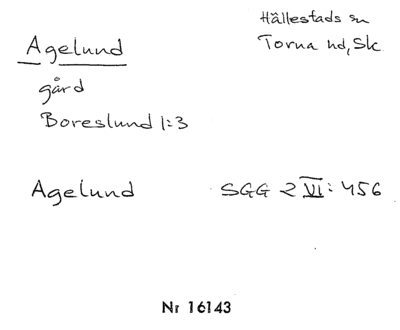 Agelund
Hällestads sn
Torna hd, Sk.
gård
Boreslund 1:3
Agelund SGG 2 VI: 456
Nr 16143